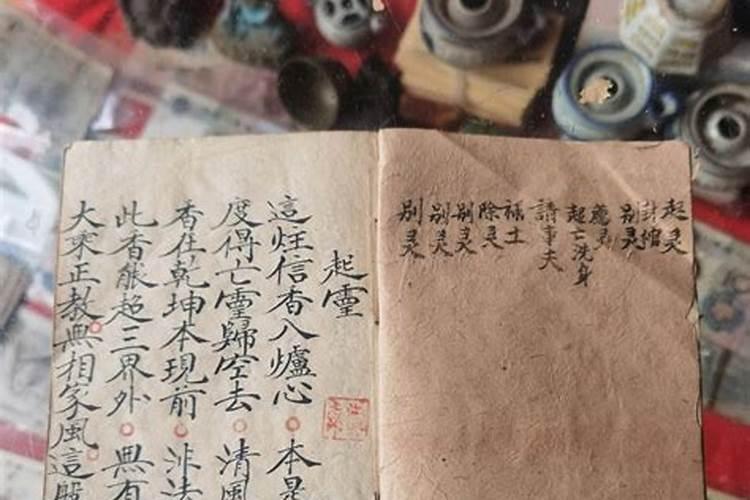 起灵
封棺
别灵
荐灵
起亡洗身
請事夫
禄土
除灵
别灵
别灵
别灵
起霊
這炷信香入爐心 本是
度得亡霊歸空去 清風
香在乾坤本現前 非法
此香能超三界外 無有
大乘正教無相家風這股